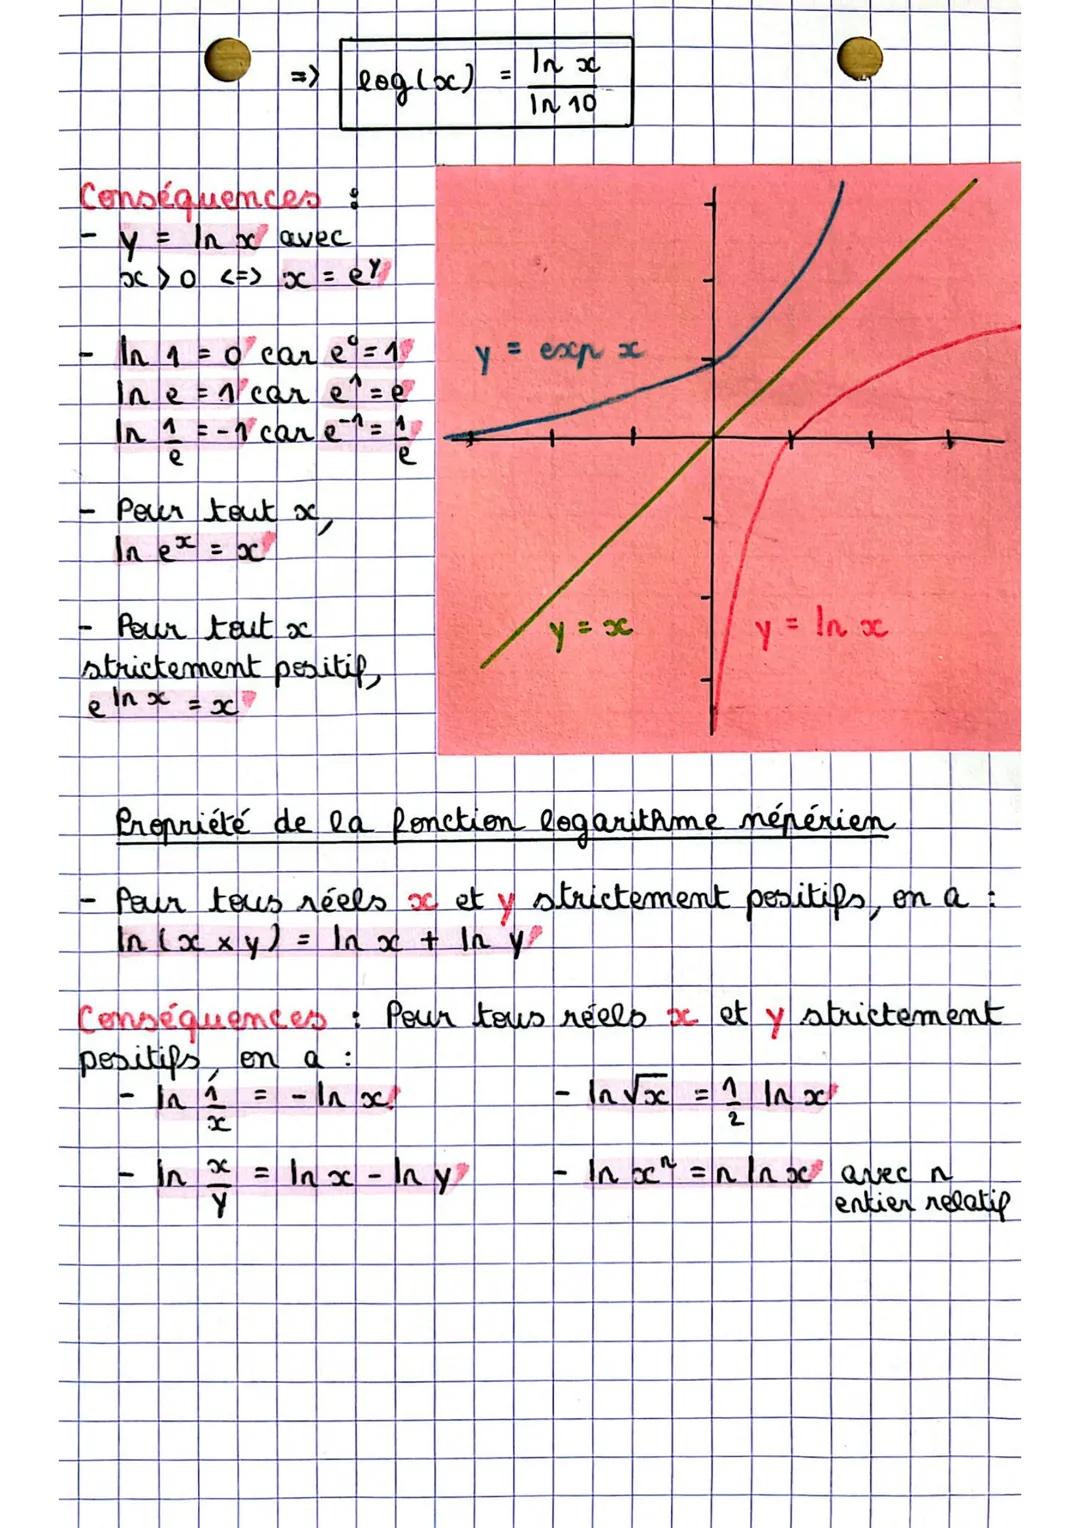 => log(x) = ln x / ln 10
Conséquences :
- y = ln x avec
x > 0 <=> x = e^y
- ln 1 = 0 car e^0 = 1
ln e = 1 car e^1 = e
ln 1/e = -1 car e^-1 = 1/e
- Pour tout x,
ln e^x = x
- Pour tout x
strictement positif,
e^ln x = x
y = exp x
y = x
y = ln x
Propriété de la fonction logarithme népérien
- Pour tous réels x et y strictement positifs, on a :
ln (x × y) = ln x + ln y
Conséquences : Pour tous réels x et y strictement
positifs, on a :
- ln 1/x = - ln x
- ln √x = 1/2 ln x
- ln x/y = ln x - ln y
- ln x^n = n ln x avec n
entier relatif